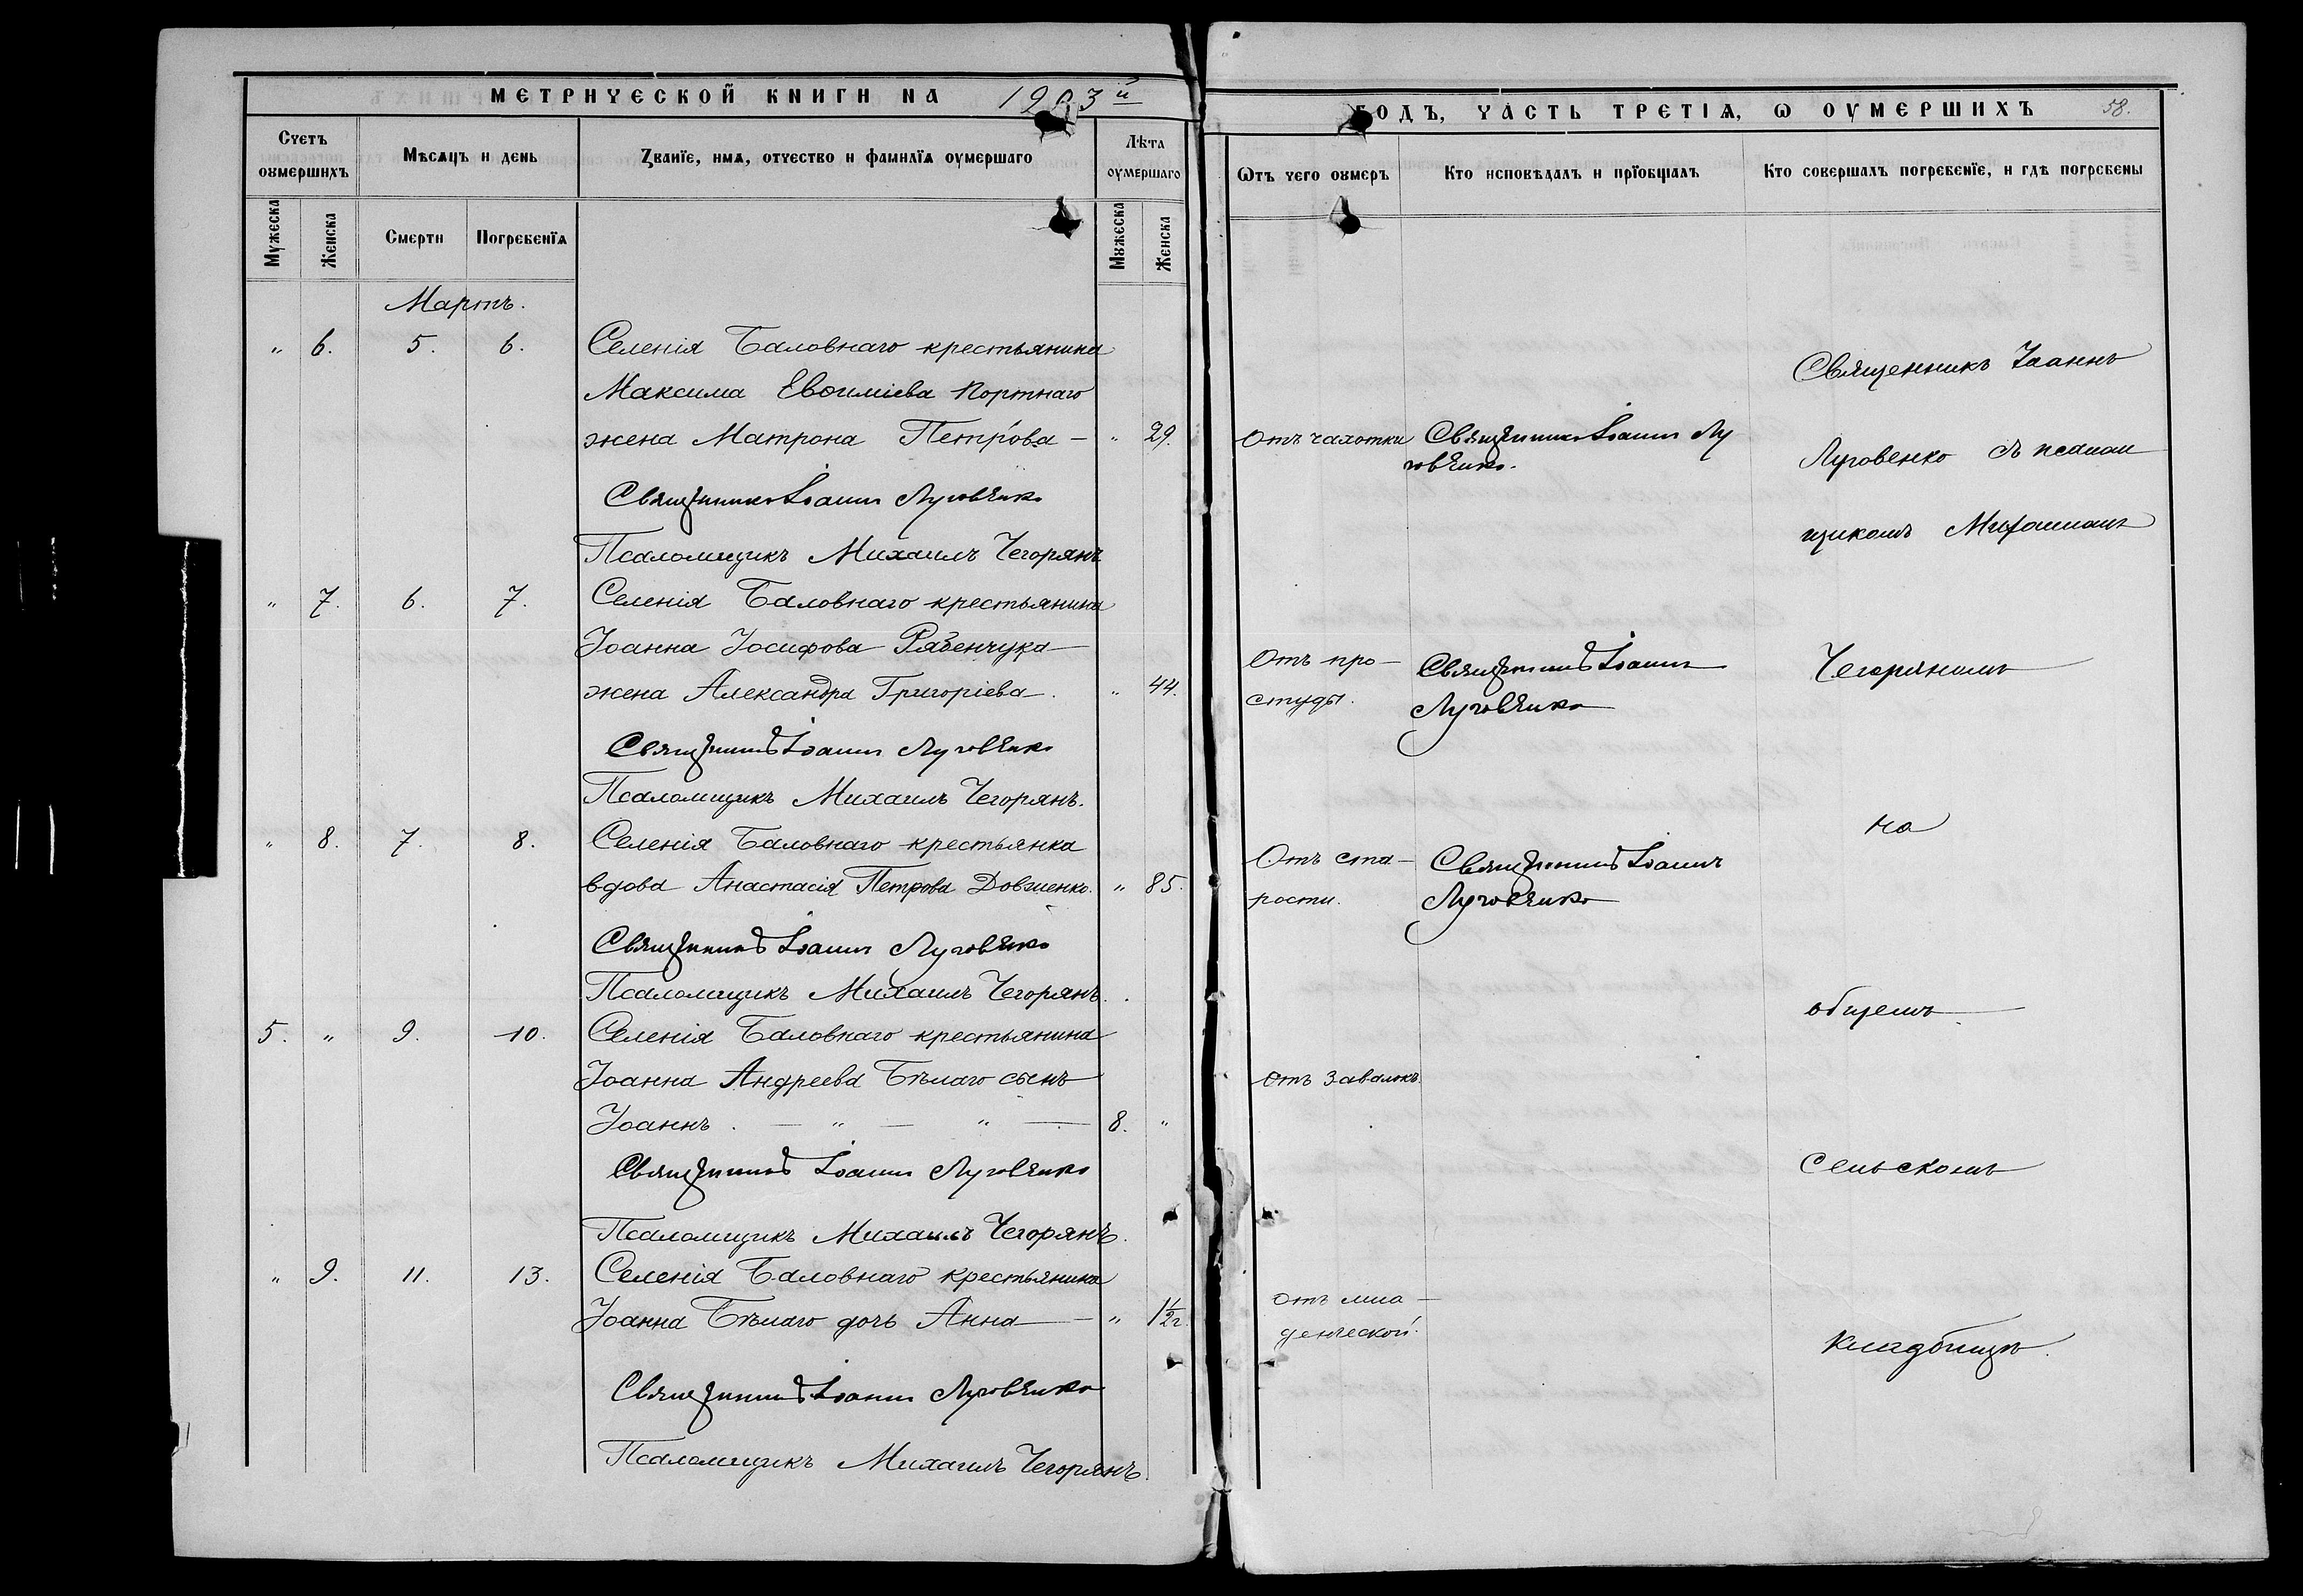 МЕТРИЧЕСКОЙ КНИГИ НА 1903й
ГОДЪ, ЧАСТЬ ТРЕТІѦ, Ѡ ОУМЕРШИХЪ 58.
Счетъ оумершихъ
Мѣсѧцъ и день
Званїе, имѧ, отчество и фамилїѧ оумершаго
Лѣта оумершаго
Ѿтъ чего оумеръ
Кто исповѣдалъ и прїобщалъ
Кто совершалъ погребенїе, и гдѣ погребены
Мужеска
Женска
Смерти
Погребенїѧ
Мужеска
Женска
Мартъ.
" 6. 5. 6. Селенія Баловнаго крестьянина
Максима Евѳиміева Портнаго
жена Матрона Петрова – " 29.
Священникъ Іоаннъ Луговенко
Псаломщикъ Михаилъ Чегорянъ
" 7. 6. 7. Селенія Баловнаго крестьянина
Іоанна Іосифова Рябенчука
жена Александра Григоріева. " 44.
Священникъ Іоаннъ Луговенко
Псаломщикъ Михаилъ Чегорянъ.
" 8. 7. 8. Селенія Баловнаго крестьянка
вдова Анастасія Петрова Довженко. " 85.
Священникъ Іоаннъ Луговенко
Псаломщикъ Михаилъ Чегорянъ.
5. " 9. 10. Селенія Баловнаго крестьянина
Іоанна Андреева Бѣлаго сынъ
Іоаннъ. — " — " — 8. "
Священникъ Іоаннъ Луговенко
Псаломщикъ Михаилъ Чегорянъ.
" 9. 11. 13. Селенія Баловнаго крестьянина
Іоанна Бѣлаго дочь Анна — " 1½ г.
Священникъ Іоаннъ Луговенко
Псаломщикъ Михаилъ Чегорянъ.
Отъ чахотки
Священникъ Іоаннъ Лу
говенко.
Отъ про–
студы.
Священникъ Іоаннъ
Луговенко
Отъ ста–
рости.
Священникъ Іоаннъ
Луговенко
Отъ завалокъ.
Отъ мла–
денческой.
Священникъ Іоаннъ
Луговенко съ псалом
щикомъ Михаиломъ
Чегоряномъ
на
общемъ
сельскомъ
кладбищѣ.